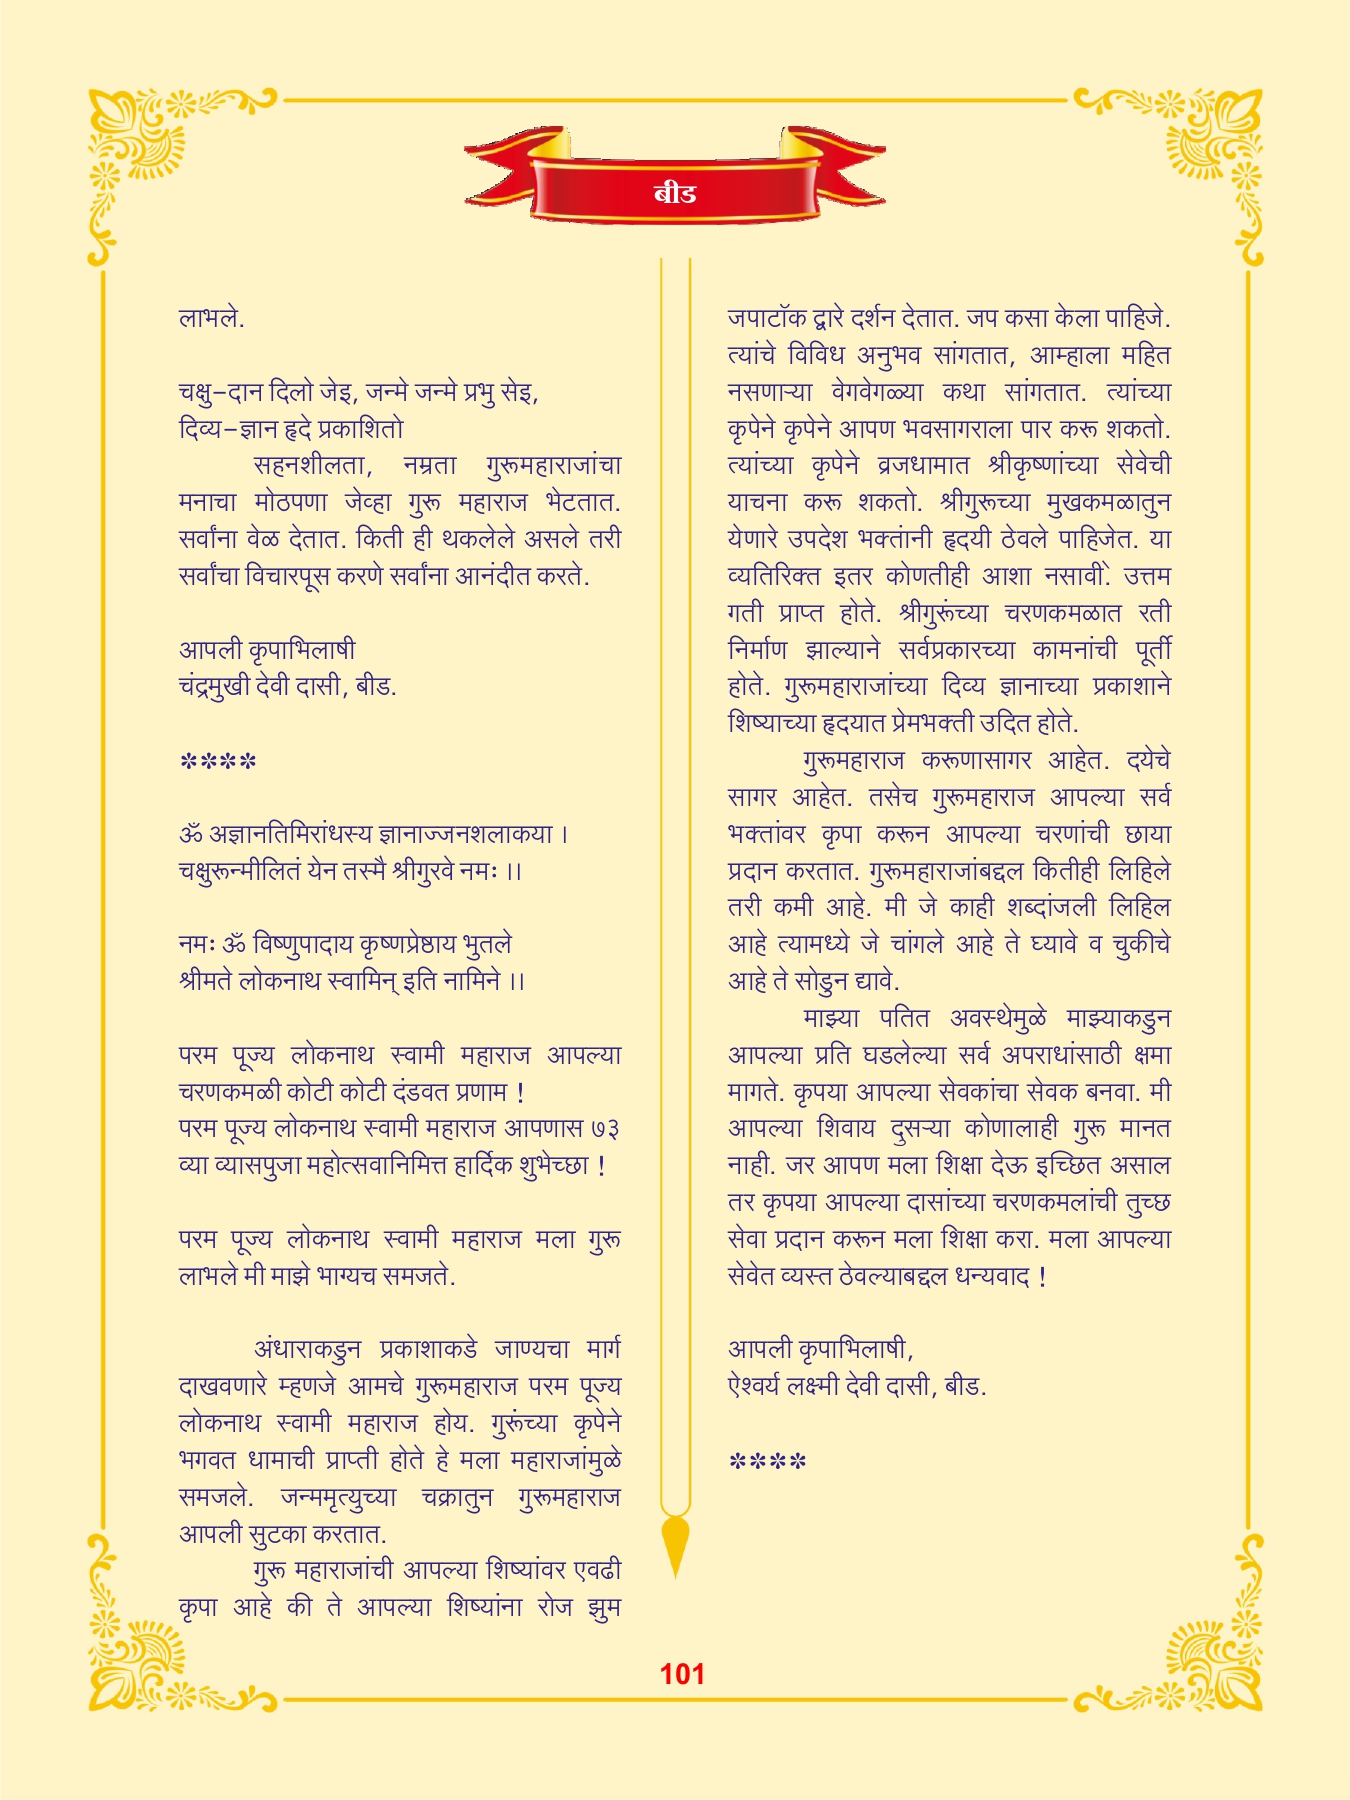 बीड
लाभले.
चक्षु–दान दिलो जेइ, जन्मे जन्मे प्रभु सेइ,
दिव्य–ज्ञान हृदे प्रकाशितो
सहनशीलता, नम्रता गुरूमहाराजांचा
मनाचा मोठपणा जेव्हा गुरू महाराज भेटतात.
सर्वांना वेळ देतात. किती ही थकलेले असले तरी
सर्वांचा विचारपूस करणे सर्वांना आनंदीत करते.
आपली कृपाभिलाषी
चंद्रमुखी देवी दासी, बीड.
****
ॐ अज्ञानतिमिरांधस्य ज्ञानाज्जनशलाकया ।
चक्षुरून्मीलितं येन तस्मै श्रीगुरवे नमः ।।
नमः ॐ विष्णुपादाय कृष्णप्रेष्ठाय भुतले
श्रीमते लोकनाथ स्वामिन् इति नामिने ।।
परम पूज्य लोकनाथ स्वामी महाराज आपल्या
चरणकमळी कोटी कोटी दंडवत प्रणाम !
परम पूज्य लोकनाथ स्वामी महाराज आपणास ७३
व्या व्यासपुजा महोत्सवानिमित्त हार्दिक शुभेच्छा !
परम पूज्य लोकनाथ स्वामी महाराज मला गुरू
लाभले मी माझे भाग्यच समजते.
अंधाराकडुन प्रकाशाकडे जाण्यचा मार्ग
दाखवणारे म्हणजे आमचे गुरूमहाराज परम पूज्य
लोकनाथ स्वामी महाराज होय. गुरूंच्या कृपेने
भगवत धामाची प्राप्ती होते हे मला महाराजांमुळे
समजले. जन्ममृत्युच्या चक्रातुन गुरूमहाराज
आपली सुटका करतात.
गुरू महाराजांची आपल्या शिष्यांवर एवढी
कृपा आहे की ते आपल्या शिष्यांना रोज झुम
जपाटॉक द्वारे दर्शन देतात. जप कसा केला पाहिजे.
त्यांचे विविध अनुभव सांगतात, आम्हाला महित
नसणाऱ्या वेगवेगळ्या कथा सांगतात. त्यांच्या
कृपेने कृपेने आपण भवसागराला पार करू शकतो.
त्यांच्या कृपेने व्रजधामात श्रीकृष्णांच्या सेवेची
याचना करू शकतो. श्रीगुरूच्या मुखकमळातुन
येणारे उपदेश भक्तांनी हृदयी ठेवले पाहिजेत. या
व्यतिरिक्त इतर कोणतीही आशा नसावीं. उत्तम
गती प्राप्त होते. श्रीगुरूंच्या चरणकमळात रती
निर्माण झाल्याने सर्वप्रकारच्या कामनांची पूर्ती
होते. गुरूमहाराजांच्या दिव्य ज्ञानाच्या प्रकाशाने
शिष्याच्या हृदयात प्रेमभक्ती उदित होते.
गुरूमहाराज करूणासागर आहेत. दयेचे
सागर आहेत. तसेच गुरूमहाराज आपल्या सर्व
भक्तांवर कृपा करून आपल्या चरणांची छाया
प्रदान करतात. गुरूमहाराजांबद्दल कितीही लिहिले
तरी कमी आहे. मी जे काही शब्दांजली लिहिल
आहे त्यामध्ये जे चांगले आहे ते घ्यावे व चुकीचे
आहे ते सोडुन द्यावे.
माझ्या पतित अवस्थेमुळे माझ्याकडुन
आपल्या प्रति घडलेल्या सर्व अपराधांसाठी क्षमा
मागते. कृपया आपल्या सेवकांचा सेवक बनवा. मी
आपल्या शिवाय दुसऱ्या कोणालाही गुरू मानत
नाही. जर आपण मला शिक्षा देऊ इच्छित असाल
तर कृपया आपल्या दासांच्या चरणकमलांची तुच्छ
सेवा प्रदान करून मला शिक्षा करा. मला आपल्या
सेवेत व्यस्त ठेवल्याबद्दल धन्यवाद !
आपली कृपाभिलाषी,
ऐश्वर्य लक्ष्मी देवी दासी, बीड.
****
101